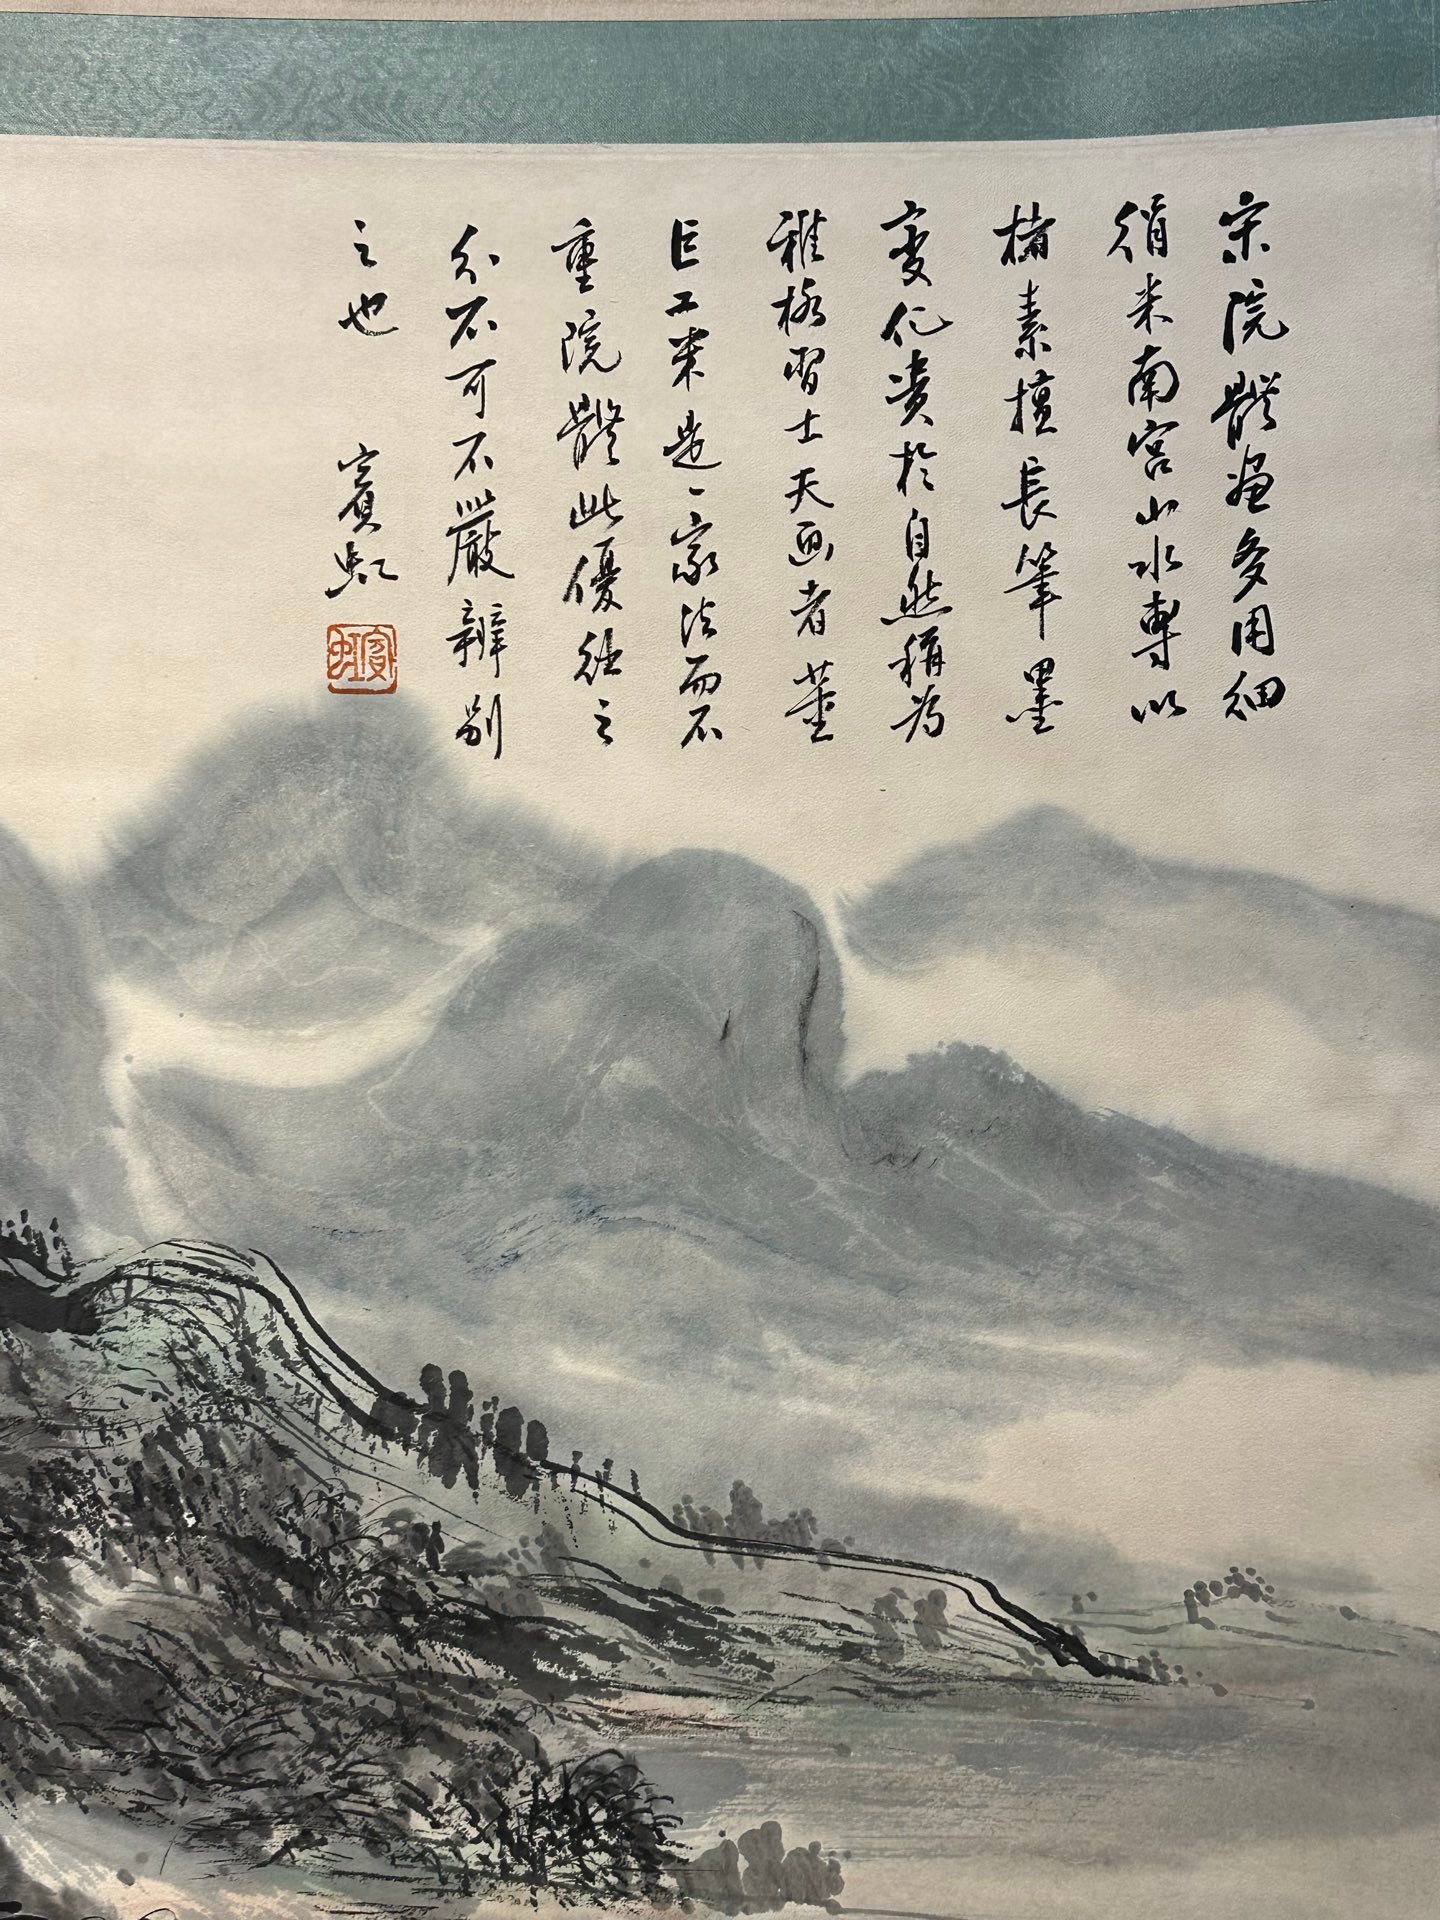 宋院體画多用細
絹米南宮山水專以
楮素擅長筆墨
變化貴於自然稱為
雅格習士夫画者董
巨二米是一家法而不
重院體此優絀之
分不可不嚴辨別
之也
賓虹
賓虹